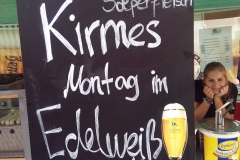 Kirmes
Montag im
Edelweiß